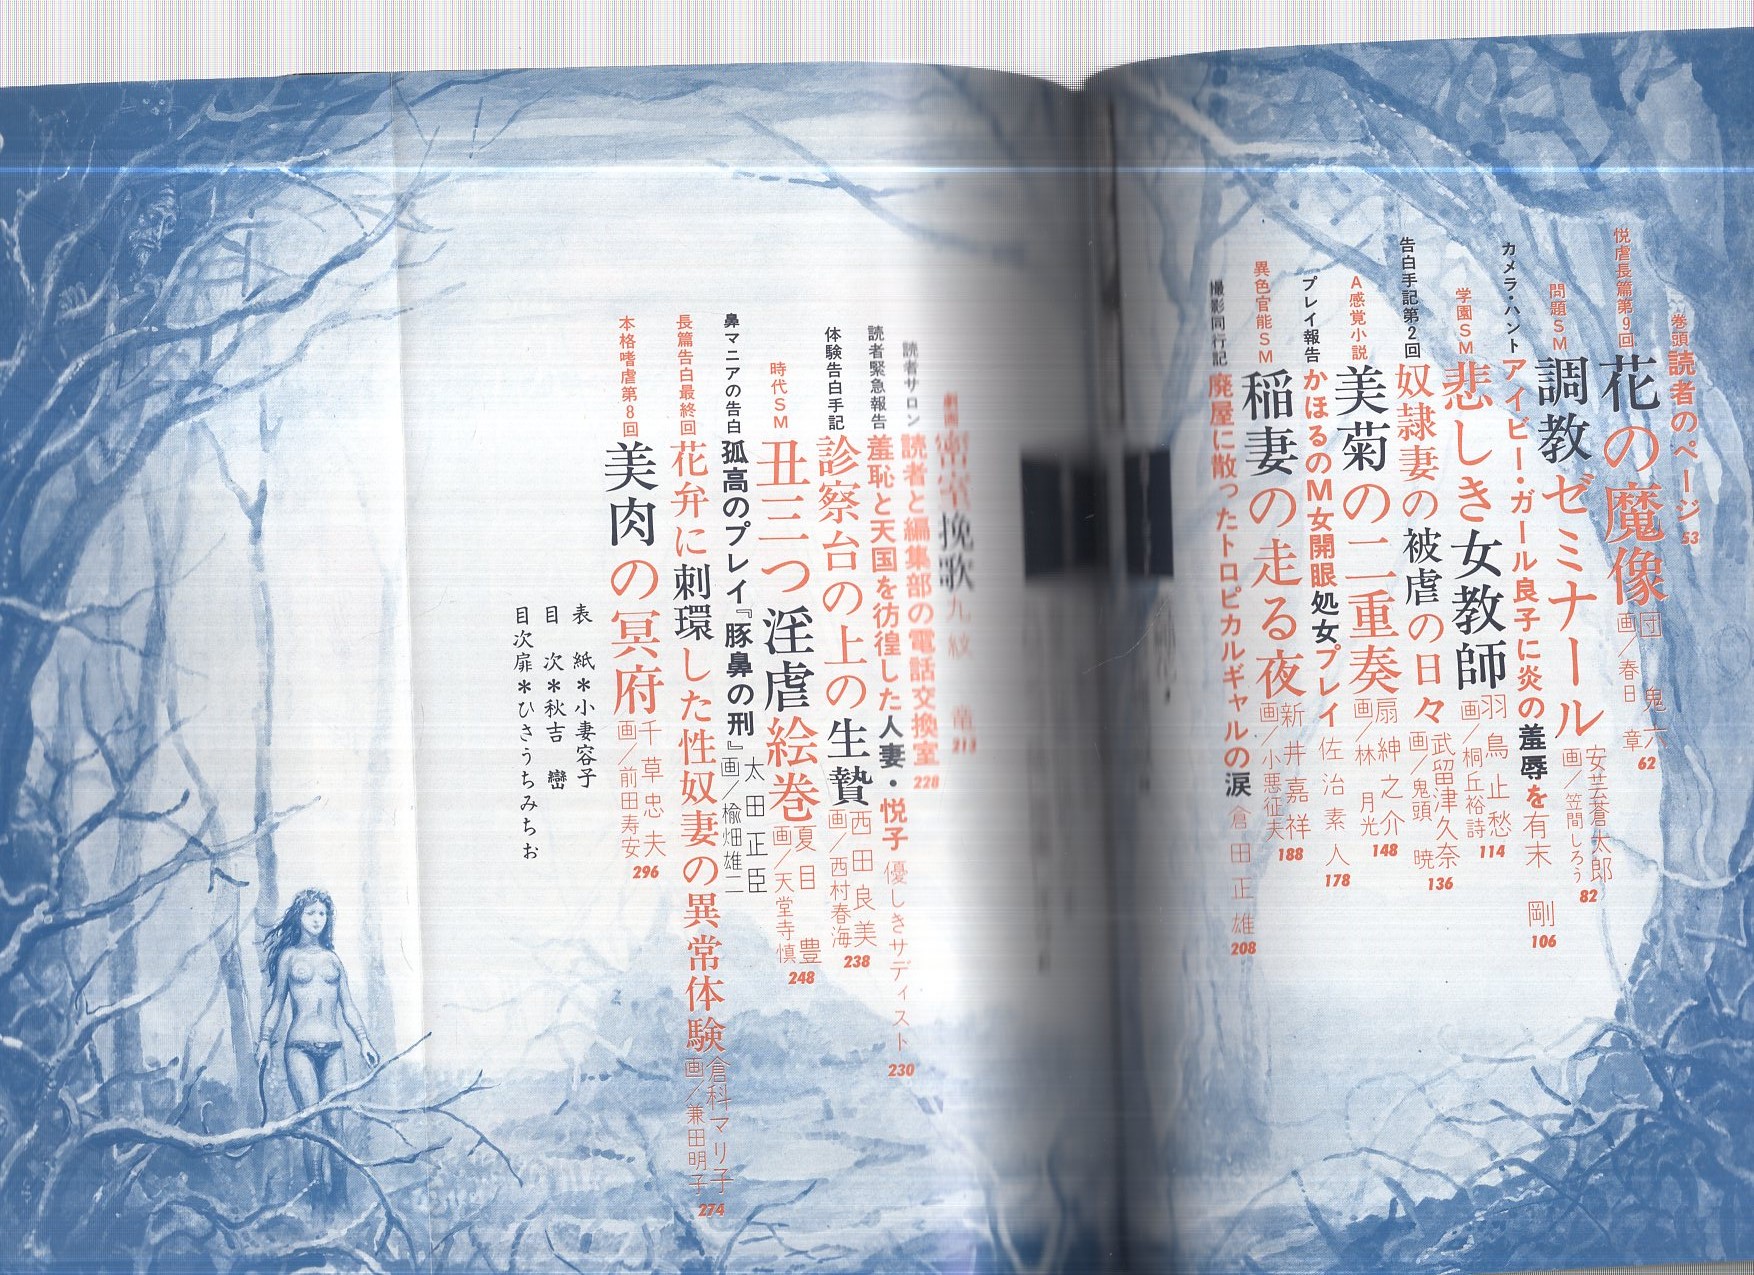 巻頭 読者のページ 53
悦虐長篇第9回 花の魔像 団 鬼六 画/春日 章 62
問題SM 調教ゼミナール 安芸蒼太郎 画/笠間しろう 82
カメラ・ハント アイビー・ガール良子に炎の羞辱を 有末 剛 106
学園SM 悲しき女教師 羽鳥止愁 画/桐丘裕詩 114
告白手記第2回 奴隷妻の被虐の日々 武留津久奈 画/鬼頭 暁 136
A感覚小説 美菊の二重奏 扇紳之介 画/林 月光 148
プレイ報告 かほるのM女開眼処女プレイ 佐治素人 178
異色官能SM 稲妻の走る夜 新井嘉祥 画/小悪征夫 188
撮影同行記 廃屋に散ったトロピカルギャルの涙 倉田正雄 208
劇画 密室挽歌 九紋 竜 213
読者サロン 読者と編集部の電話交換室 228
読者緊急報告 羞恥と天国を彷徨した人妻・悦子 優しきサディスト 230
体験告白手記 診察台の上の生贄 西田良美 画/西村春海 238
時代SM 丑三つ淫虐絵巻 夏目 豊 画/天堂寺慎 248
鼻マニアの告白 孤高のプレイ『豚鼻の刑』 太田正臣 画/楡畑雄二
長篇告白最終回 花弁に刺環した性奴妻の異常体験 倉科マリ子 画/兼田明子 274
本格嗜虐第8回 美肉の冥府 千草忠夫 画/前田寿安 296
表 紙＊小妻容子
目 次＊秋吉 巒
目次扉＊ひさうちみちお